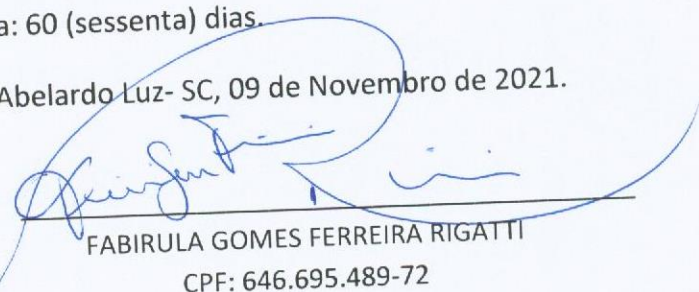 a: 60 (sessenta) dias.
Abelardo Luz- SC, 09 de Novembro de 2021.
FABIRULA GOMES FERREIRA RIGATTI
CPF: 646.695.489-72